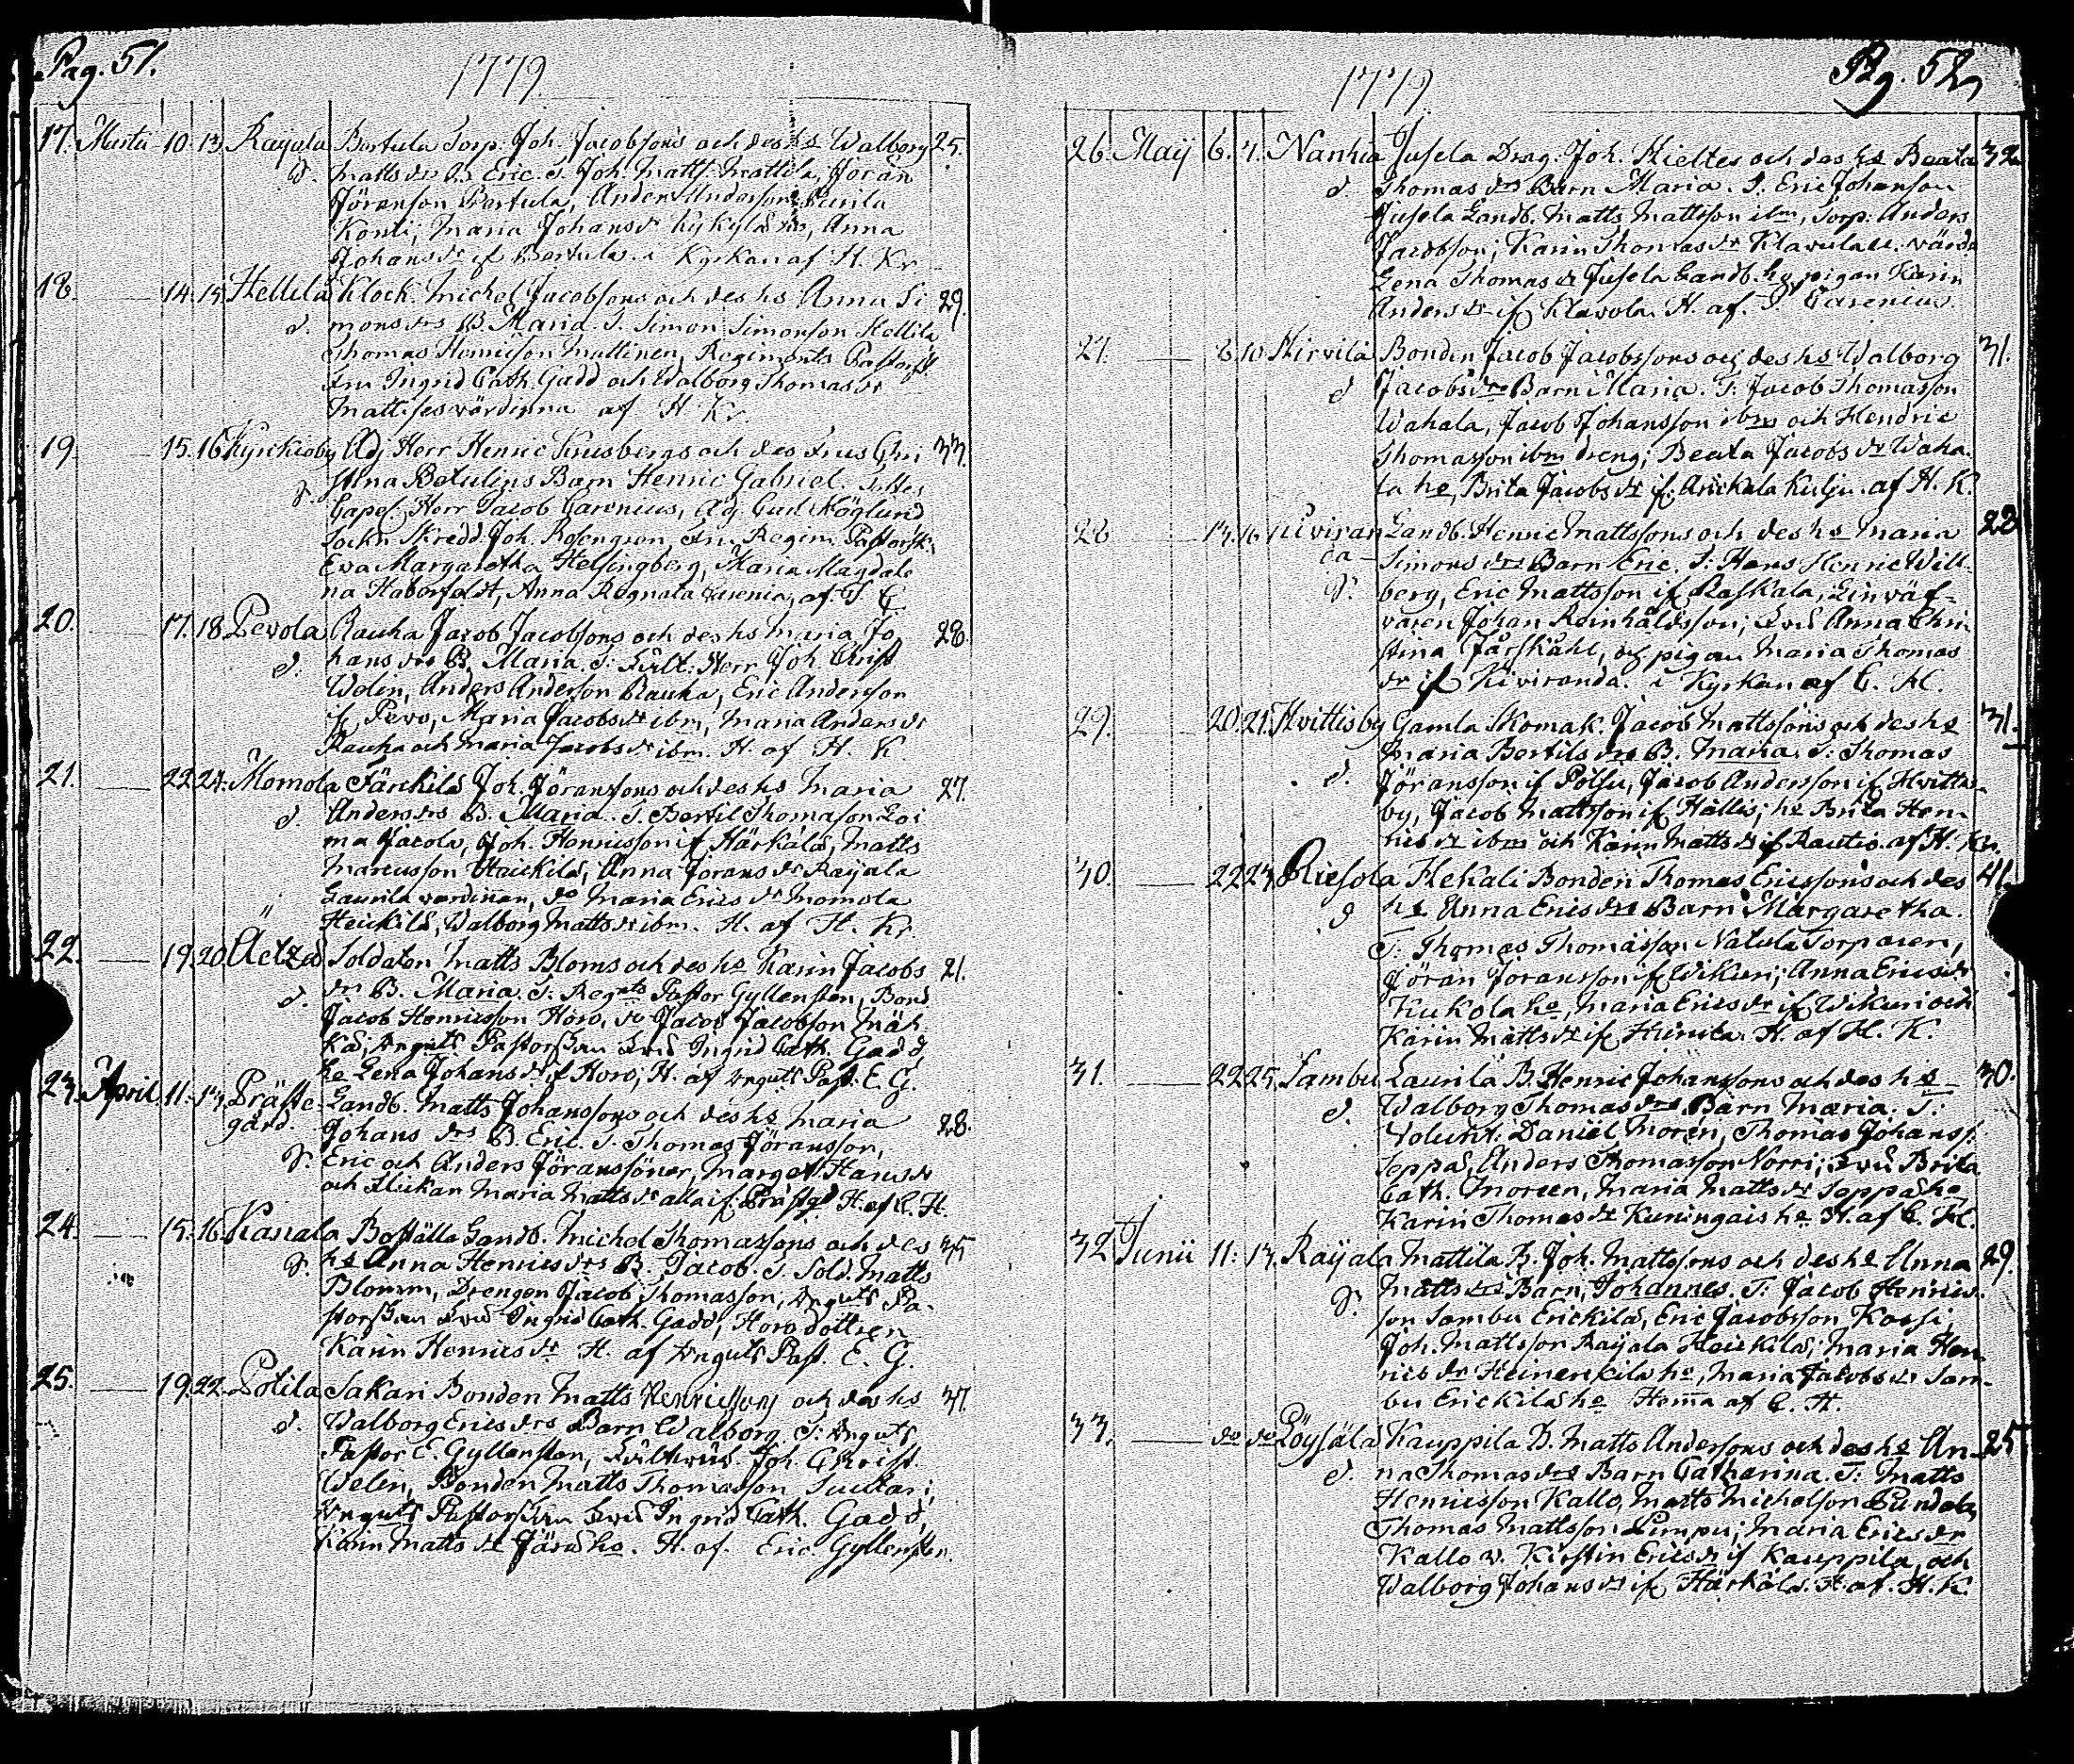 Pag. 51.
1779.
17. Martii 10. 13. Rajala Bertula Torp. Joh. Jacobsons och des hs Walborg 25.
Matts drs B. Eric. T. Joh. Matts. Mattila, Jöran
Jöranson Bertula, Anders Anderson Purila
Konti; Maria Johans dr Kykylä, Anna
Johans dr if Bertula. i Kyrkan af H. Kr.
18. — 14. 15. Hellilä Klock. Michel Jacobsons och des hs Anna Si 29.
d. mons drs B. Maria. T. Simon Simonson Hellilä
Thomas Henricson Mattinen, Regiments Pastorsk.
Fru Ingrid Cath. Gadd och Walborg Thomas dr
Mattises värdinna af H. Kr.
19. — 15. 16. Kyrckioby Adj. Herr Henric Krusbergs och des Frus Chri 33.
stina Betulins Barn Henric Gabriel. Testes
Capel. Herr Jacob Carenius, Adj. Carl Höglund
Sockn Skredd. Joh. Rosengren, Fru Regim. Pastorsk.
Eva Margaretha Helsingberg, Maria Magdale
na Haberfeldt, Anna Regnata Carenia, af J C.
20. — 17. 18. Pevola Rauha Jacob Jacobsons och des hs Maria Jo 28.
d. hans drs B. Maria. T. Herr Joh Christ
Welin, Anders Anderson Rauha, Eric Anderson
if Pevo, Maria Jacobs dr ibm, Maria Anders dr
Rauha och Maria Jacobs dr ibm. H. af H. K
21. — 22 24. Momola Färckilä Joh. Jöransons och des hs Maria 27.
d. Anders drs B. Maria. T. Bertil Thomason Loi
ma Jacola, Joh. Henricsson if Härkälä, Matts
Marcusson Haickilä; Anna Jörans dr Rajala
Laurila vardinan, do Maria Erics dr Momola
Heickilä, Walborg Matts dr ibm. H. af H. Kr.
22. — 19. 20. Aetzä Soldaten Matts Bloms och des hs Karin Jacobs 21.
d. drs B. Maria. T. Regnts Pastor Gyllensten, Bond.
Jacob Henricsson Horo, do Jacob Jacobson Mäh
Pastorskan Fru Ingrid Cath. Gadd,
hs Lena Johans dr if Horo, H. af Past. E. G.
23. April. 11. 13. Präste- Landb. Matts Johanssons och des hs Maria 28.
gård. Johans drs B. Eric. T. Thomas Jöransson,
Eric och Anders Jöranssöner, Marget Hans dr
och Flickan Maria Matts dr alla if. Prästgd H. af C. H.
24. — 15. 16. Kanala Boställs Landb. Michel Thomassons och des 35
hs Anna Henrics drs B. Jacob. T. Sold. Matts
Blomm, Drengen Jacob Thomasson, Pa-
storskan Fru Ingrid Cath. Gadd, Horo dottren
Karin Henrics dr H. af Past. E. G.
25. — 19. 22. Potila Sakari Bonden Matts Henricssons och des hs 37.
d. Walborg Erics drs Barn Walborg. T.
Pastor E. Gyllensten, Joh. Christ.
Welin, Bonden Matts Thomasson Suckari;
Pastorskan Fru Ingrid Cath. Gadd,
Karin Matts dr Järä hs. H. af. Eric Gyllensten.
Pag. 52.
1779.
26. Maij 6. 7. Nanhia Jusela Drag. Joh. Hieltes och des hs Beata 32
d. Thomas drs Barn Maria. T. Eric Johanson
Jusela Landb. Matts Mattsson ibm, Torp. Anders
Jacobson; Karin Thomas dr Klavula
Lena Thomas dr Jusela Landb. hs, pigan Karin
Anders dr if Klavola. H. af. J. Carenius.
27. — 8. 10. Hirvilä Bonden Jacob Jacobssons och des hs Walborg 31.
d Jacobs drs Barn Maria. T: Jacob Thomasson
Wahala, Jacob Johansson ibm och Hendric
Thomasson ibm dreng; Beata Jacobs dr Waha-
la hs, Brita Jacobs dr if. Anickala Kulju. af H. K.
28 — 13. 16. Kiviran Landb. Henric Mattssons och des hs Maria 22
da Simons drs Barn Eric. T: Hans Henric Will-
berg, Eric Mattsson if Raskala, Linväf-
varen Johan Reinholdsson; Anna Chri-
stina Järskåhl, och pigan Maria Thomas
dr if Kiviranda. i Kyrkan af C. H.
29. — 20. 21. Hvittisby Gamla Skomak. Jacob Mattssons och des hs 31.
d. Maria Bertils drs B. Maria. T: Thomas
Jöransson if Polsu, Jacob Andersson if Hvittis-
by, Jacob Mattsson if Hällis; hs Brita Hen-
rics dr ibm och Karin Matts dr if Rautio. af H. Kr.
30. — 22 23. Riesola Hekali Bonden Thomas Ericssons och des 41.
d hs Anna Erics drs Barn Margaretha.
T: Thomas Thomasson Natula Torparen,
Jöran Joransson if Wikuri; Anna Erics dr
Kukola hs, Maria Erics dr if Wikuri och
Karin Matts dr if H. af H. K.
31. — 22 25. Sambu Laurila B. Henric Johanssons och des hs 30.
d. Walborg Thomas drs Barn Maria. T:
Volunt. Daniel Moren, Thomas Johanss.
Seppä, Anders Thomasson Norri; Brita
Cath. Moreen, Maria Matts dr Seppä hs
Karin Thomas dr Kuningais hs H. af C. H.
32 Junii 11. 13. Rajala Mattila B. Joh. Mattssons och des hs Anna 29.
Matts drs Barn, Johannes. T: Jacob Henrics-
son Sambu Erickilä, Eric Jacobsson Kossi,
Joh. Mattsson Rajala Heickilä; Maria Hen-
rics dr Heinenkila hs, Maria Jacobs dr Sam-
bu Erickilä hs Hema af C. H.
33. — do do Löysälä Kauppila B. Matts Anderssons och des hs An- 25
d. na Thomas drs Barn Catharina. T: Matts
Henricsson Kallo, Matts Michelson Pundola
Thomas Mattsson Pumpu; Maria Erics dr
Kallo v. Kirstin Erics dr if Kauppila, och
Walborg Johans dr if Härkälä. H. af. H. K.